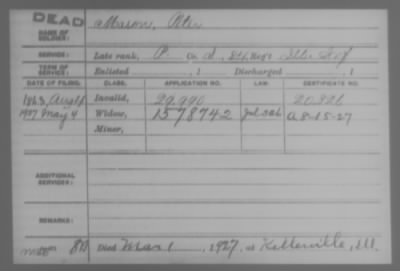 DEAD
NAME OF SOLDIER: Peter
SERVICE: Late rank, P Co. d, Reg't Ills Inf
TERM OF SERVICE: Enlisted , 1 Discharged , 1
DATE OF FILING. CLASS. APPLICATION NO. LAW. CERTIFICATE NO.
1863, Aug Invalid, 29,990 20,826
1927 May 4 Widow, 1578742 A 8-15-27
Minor,
ADDITIONAL SERVICES:
REMARKS:
Died Mar 1 , 1927, at Ill.